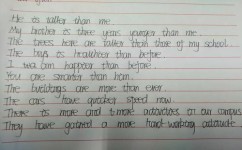 He is taller than me.
My brother is three years younger than me.
The trees here are taller than those of my school.
The boys is healthier than before.
I was happeer than before.
You are smarter than him.
The buildings are more than ever.
The cars have quicker speed now.
There is more and more activities on our campus.
They have gotened a more hard-working attitude.